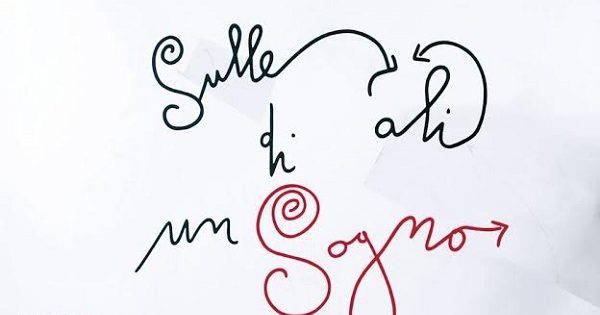 Sulle ali
di
un Sogno